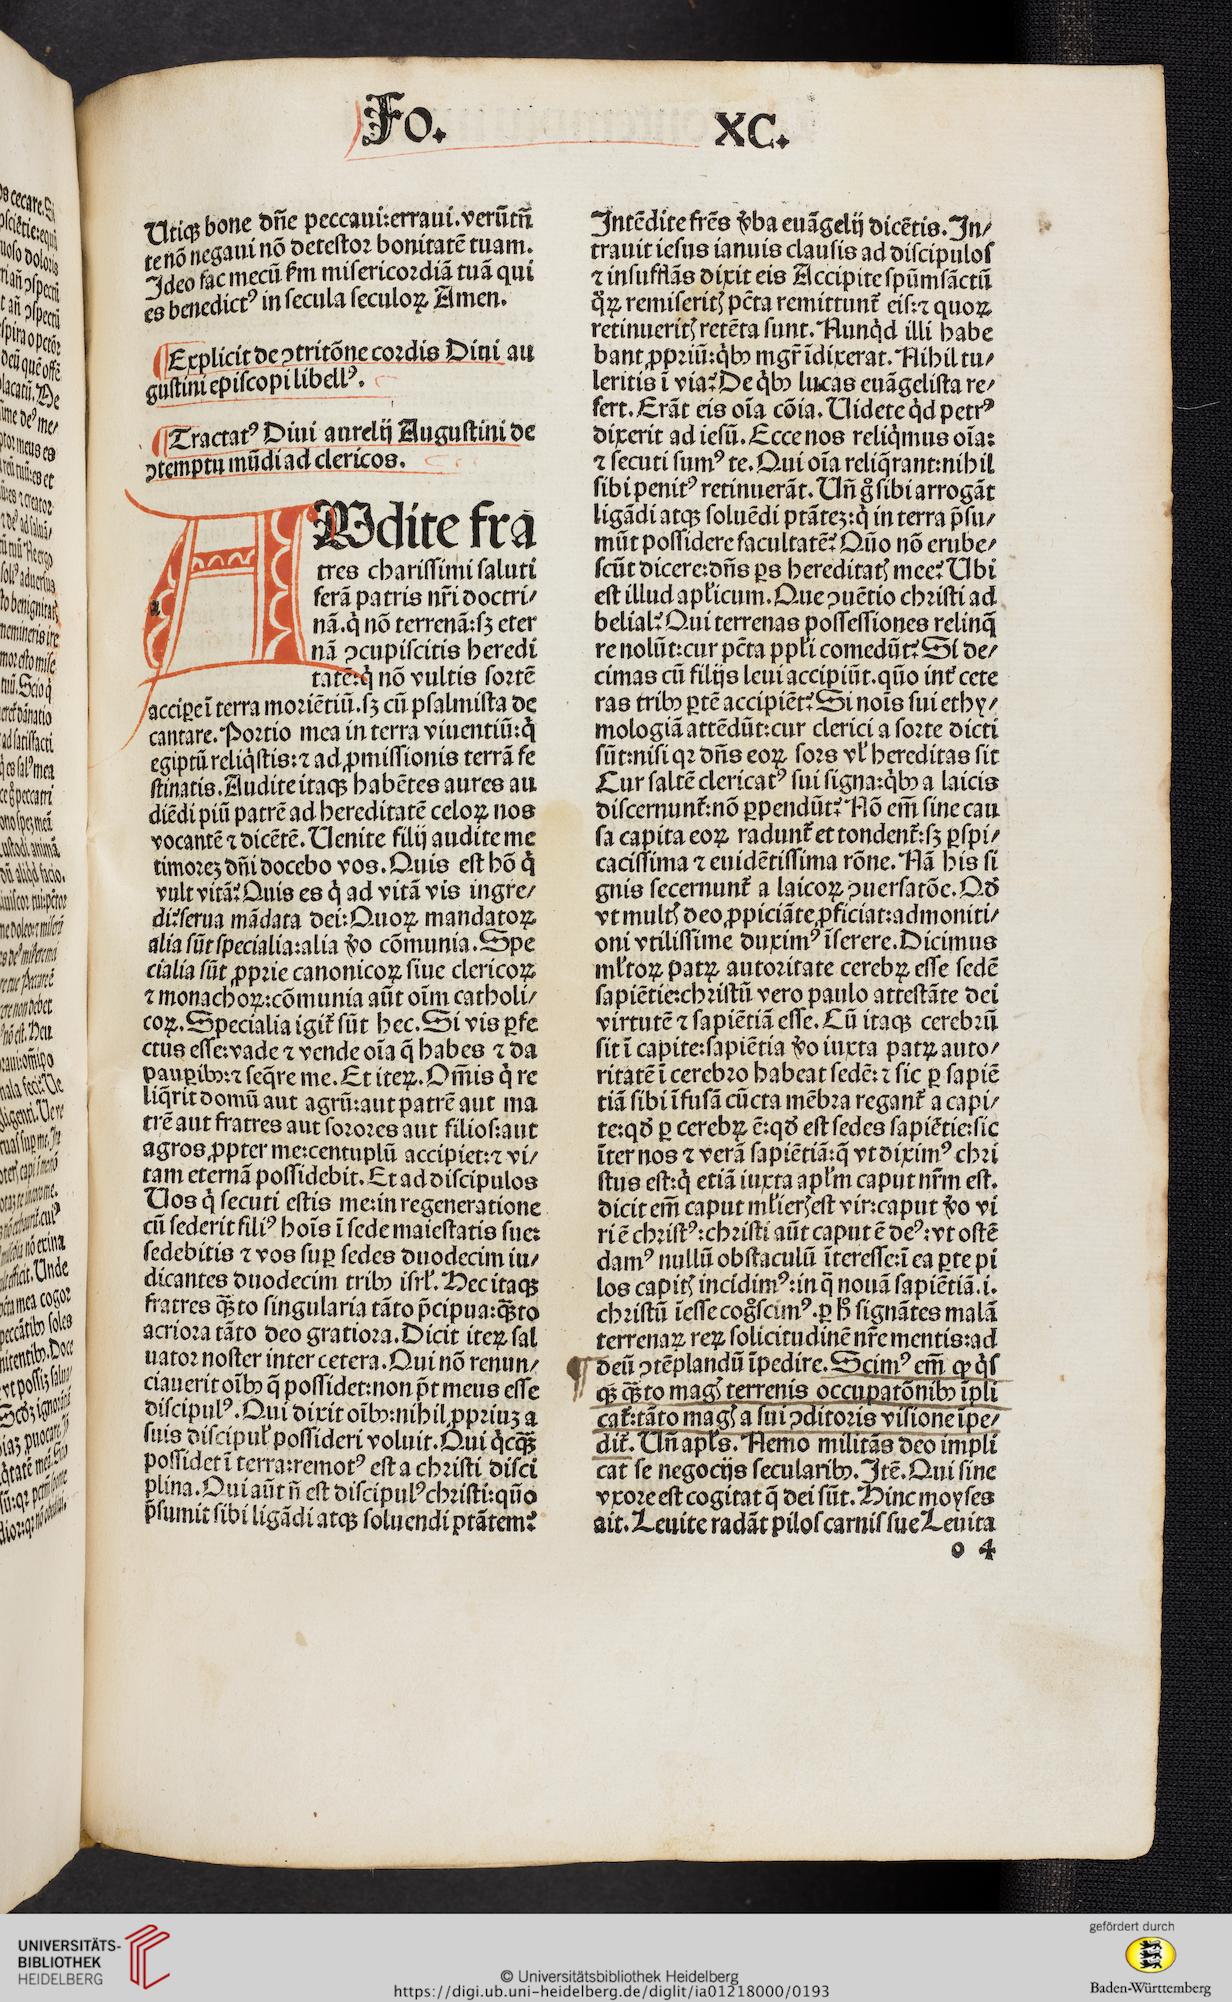 Fo. XC.
Utiqꝫ bone dñe peccaui:erraui.verũtñ
te nõ negaui nõ detestor bonitatẽ tuam.
Ideo fac mecũ ẜm misericordiã tuã qui
es benedictꝰ in secula seculoꝝ Amen.
¶Explicit de ↄtritõne cordis Diui au
gustini episcopi libellꝰ.
¶Tractatꝰ Diui aurelij Augustini de
ↄtemptu mũdi ad clericos.
AUdite fra
tres charissimi saluti
ferã patris nr̃i doctri/
nã.q̇ nõ terrenã:sꝫ eter
nã ↄcupiscitis heredi
tatẽ:q̇ nõ vultis sortẽ
accipe ĩ terra moriẽtiũ.sꝫ cũ psalmista de
cantare.Portio mea in terra viuentiũ:q̇
egiptũ reliq̇stis:⁊ ad ꝓmissionis terrã fe
stinatis.Audite itaqꝫ habẽtes aures au
diẽdi piũ patrẽ ad hereditatẽ celoꝝ nos
vocantẽ ⁊ dicẽtẽ.Uenite filij audite me
timoreꝫ dñi docebo vos.Quis est hõ q̇
vult vitã?Quis es q̇ ad vitã vis ingre/
di?serua mãdata dei:Quoꝝ mandatoꝝ
alia sũt specialia:alia ṽo cõmunia.Spe
cialia sũt ꝓprie canonicoꝝ siue clericoꝝ
⁊ monachoꝝ:cõmunia aũt oĩm catholi/
coꝝ.Specialia igit̃ sũt hec.Si vis ꝑfe
ctus esse:vade ⁊ vende oĩa q̃ habes ⁊ da
pauꝑibꝫ:⁊ seq̃re me.Et iteꝝ.Om̃is q̇ re
liq̇rit domũ aut agrũ:aut patrẽ aut ma
trẽ aut fratres aut sorores aut filios:aut
agros ꝓpter me:centuplũ accipiet:⁊ vi/
tam eternã possidebit.Et ad discipulos
Uos q̇ secuti estis me:in regeneratione
cũ sederit filiꝰ hoĩs ĩ sede maiestatis sue:
sedebitis ⁊ vos suꝑ sedes duodecim iu/
dicantes duodecim tribꝫ isrl̃.Hec itaqꝫ
fratres q̃ꝫto singularia tãto p̃cipua:q̃ꝫto
acriora tãto deo gratiora.Dicit iteꝝ sal
uator noster inter cetera.Qui nõ renun/
ciauerit oĩbꝫ q̃ possidet:non põt meus esse
discipulꝰ.Qui dixit oĩbꝫ:nihil ꝓpriuꝫ a
suis discipul̃ possideri voluit.Qui q̇cq̃ꝫ
possidet ĩ terra:remotꝰ est a christi disci
plina.Qui aũt ñ est discipulꝰ christi:quõ
p̃sumit sibi ligãdi atqꝫ soluendi ptãtem?
Intẽdite frẽs ṽba euãgelij dicẽtis.In/
trauit iesus ianuis clausis ad discipulos
⁊ insufflãs dixit eis Accipite spũmsãctũ
q̊ꝝ remiseritꝭ pcta remittunt̃ eis:⁊ quoꝝ
retinueritꝭ retẽta sunt.Nunq̇d illi habe
bant ꝓpriũ:q̇bꝫ mgr̃ ĩdixerat.Nihil tu/
leritis ĩ via?De q̇bꝫ lucas euãgelista re/
fert.Erãt eis oĩa cõia.Uidete q̇d petrꝰ
dixerit ad iesũ.Ecce nos reliq̇mus oĩa:
⁊ secuti sumꝰ te.Qui oĩa reliq̇rant:nihil
sibi penitꝰ retinuerãt.Uñ g̊ sibi arrogãt
ligãdi atqꝫ soluẽdi ptãteꝫ:q̇ in terra p̃su/
mũt possidere facultatẽ?Quõ nõ erube/
scũt dicere:dñs ps̃ hereditatꝭ mee?Ubi
est illud apl̃icum.Que ↄuẽtio christi ad
belial?Qui terrenas possessiones relinq̃
re nolũt:cur pcta ppl̃i comedũt?Si de/
cimas cũ filijs leui accipiũt.quõ int̃ cete
ras tribꝫ ꝑtẽ accipiẽt?Si nois sui ethy/
mologiã attẽdũt:cur clerici a sorte dicti
sũt:nisi qꝛ dñs eoꝝ sors vl̃ hereditas sit
Cur saltẽ clericatꝰ sui signa:q̇bꝫ a laicis
discernunt̃:nõ ꝑpendũt?Nõ em̃ sine cau
sa capita eoꝝ radunt̃ et tondent̃:sꝫ ꝑspi/
cacissima ⁊ euidẽtissima rõne.Nã his si
gnis secernunt̃ a laicoꝝ ↄuersatõe.Qđ
vt multꝭ deo ꝓpiciãte ꝓficiat:admoniti/
oni vtilissime duximꝰ ĩserere.Dicimus
ml̃toꝝ patꝝ autoritate cerebꝝ esse sedẽ
sapiẽtie:christũ vero paulo attestãte dei
virtutẽ ⁊ sapiẽtiã esse.Cũ itaqꝫ cerebrũ
sit ĩ capite:sapiẽtia ṽo iuxta patꝝ auto/
ritatẽ ĩ cerebro habeat sedẽ:⁊ sic ꝑ sapiẽ
tiã sibi ĩfusã cũcta mẽbra regant̃ a capi/
te:qđ ꝑ cerebꝝ ẽ:qđ est sedes sapiẽtie:sic
ĩter nos ⁊ verã sapiẽtiã:q̃ vt diximꝰ chri
stus est:q̇ etiã iuxta apl̃m caput nr̃m est.
dicit em̃ caput ml̃ierꝭ est vir:caput ṽo vi
ri ẽ christꝰ:christi aũt caput ẽ deꝰ:vt ostẽ
damꝰ nullũ obstaculũ ĩteresse:ĩ ea ꝑte pi
los capitꝭ incidimꝰ:in q̃ nouã sapiẽtiã.i.
christũ ĩesse cog̊scimꝰ.ꝑ ħ signãtes malã
terrenaꝝ reꝝ solicitudinẽ nr̃e mentis:ad
deũ ↄtẽplandũ ĩpedire.Scimꝰ em̃ ꝙ q̇s
qꝫ q̃ꝫto magꝭ terrenis occupatõnibꝫ ĩpli
cat̃:tãto magꝭ a sui ↄditoris visione ĩpe/
dit̃.Uñ apl̃s.Nemo militãs deo impli
cat se negocijs secularibꝫ.Itẽ.Qui sine
vxore est cogitat q̃ dei sũt.Hinc moyses
ait.Leuite radãt pilos carnis sue Leuita
o 4
UNIVERSITÄTS-
BIBLIOTHEK
HEIDELBERG
© Universitätsbibliothek Heidelberg
https://digi.ub.uni-heidelberg.de/diglit/ia01218000/0193
gefördert durch
Baden-Württemberg